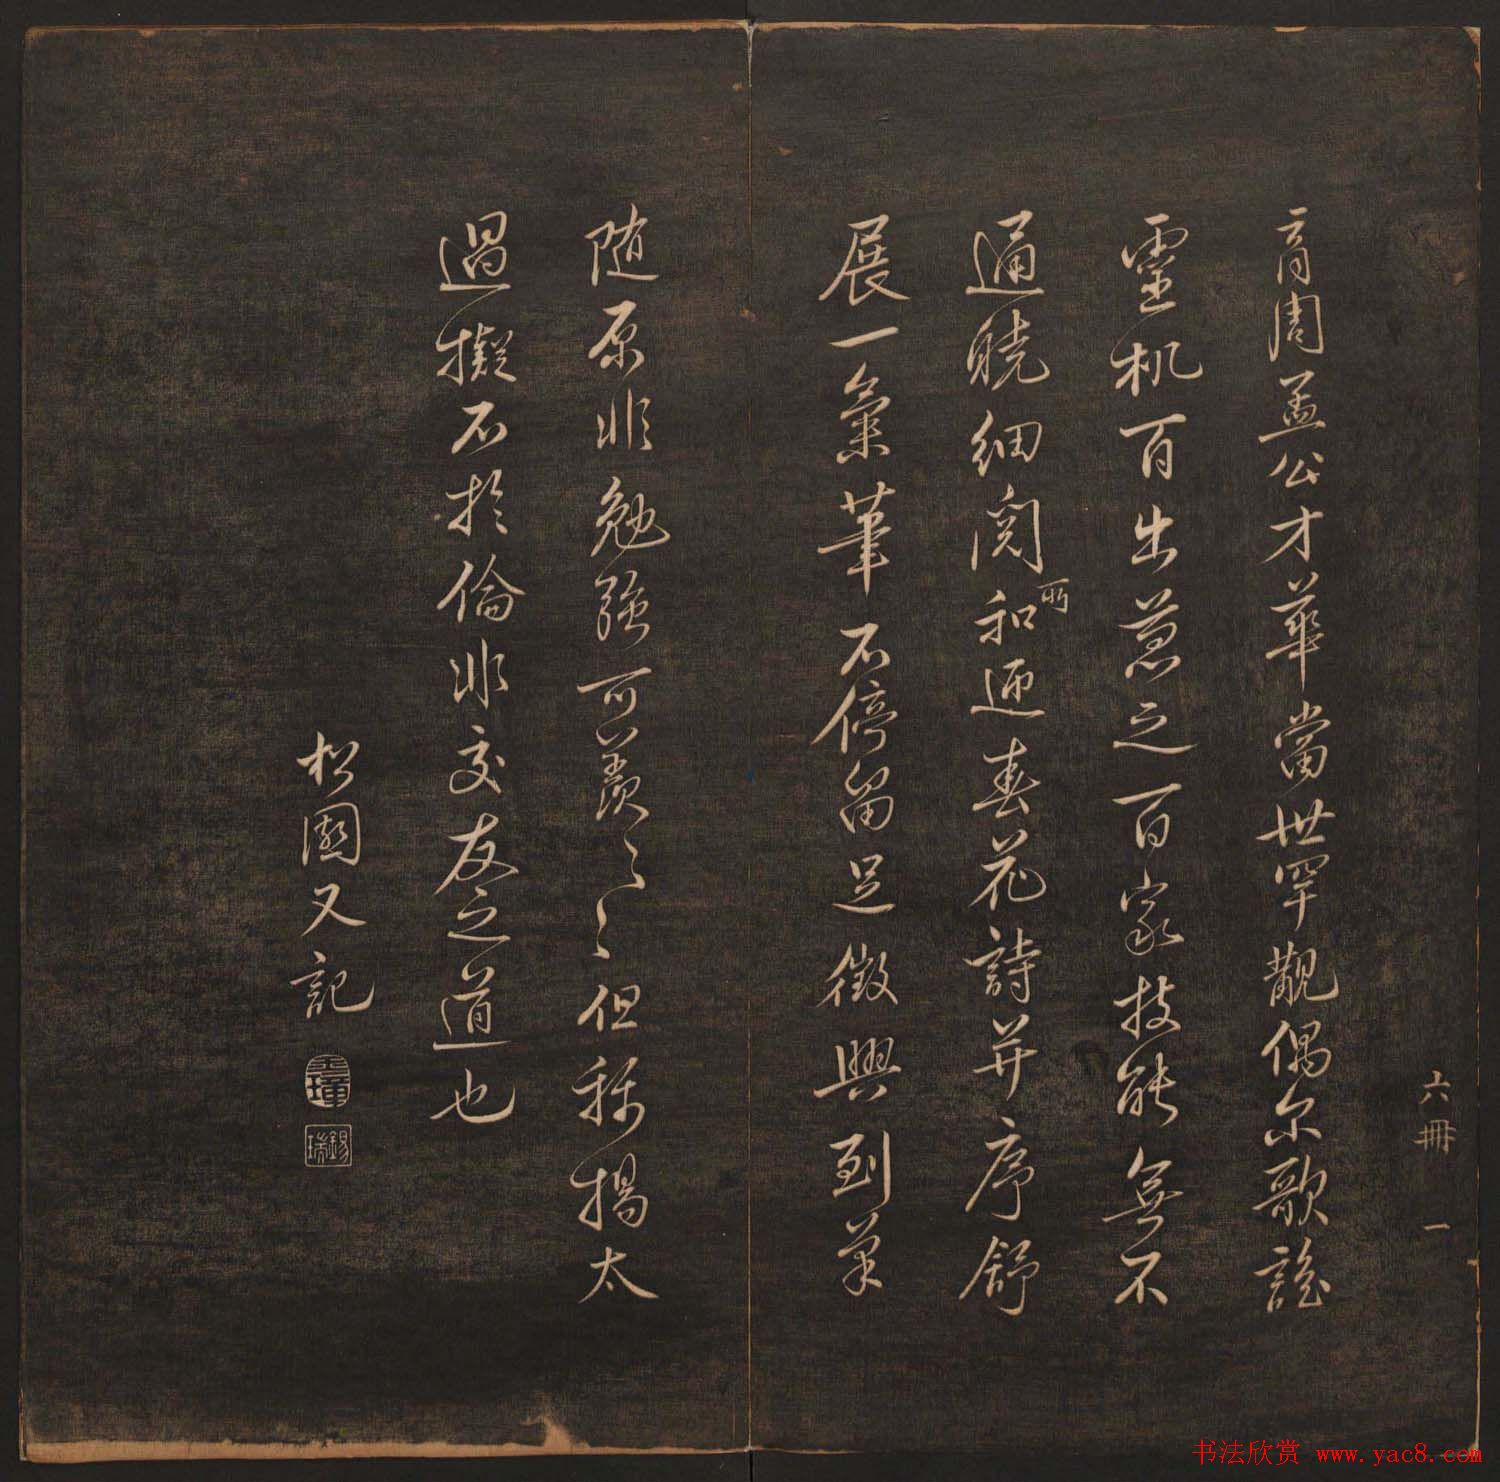 六冊 一
育周孟公才華當世罕觀偶尔歌謠
靈机百出兼之百家技能無不
通曉細閱所和迎春花詩并序舒
展一氣筆不停留足徵興到筆
随原非勉強可羨〻〻但稱揚太
過擬不於倫非交友之道也
松園又記
书法欣赏 www.yac8.com